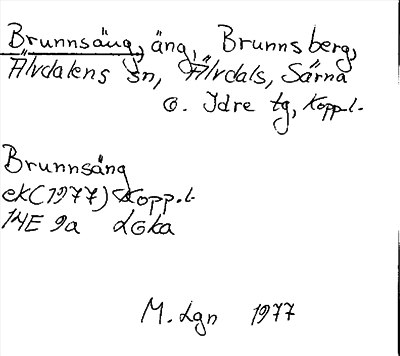 Brunnsäng, äng, Brunnsberg,
Älvdalens sn, Älvdals, Särna
o. Idre tg, Kopp.l.
Brunnsäng
ek(1977) Kopp.l.
14E 9a Loka
M. Lgn 1977